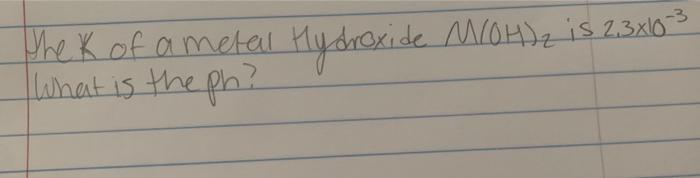 The K of a metal Hydroxide M(OH)₂ is 2.3x10⁻³
What is the ph?